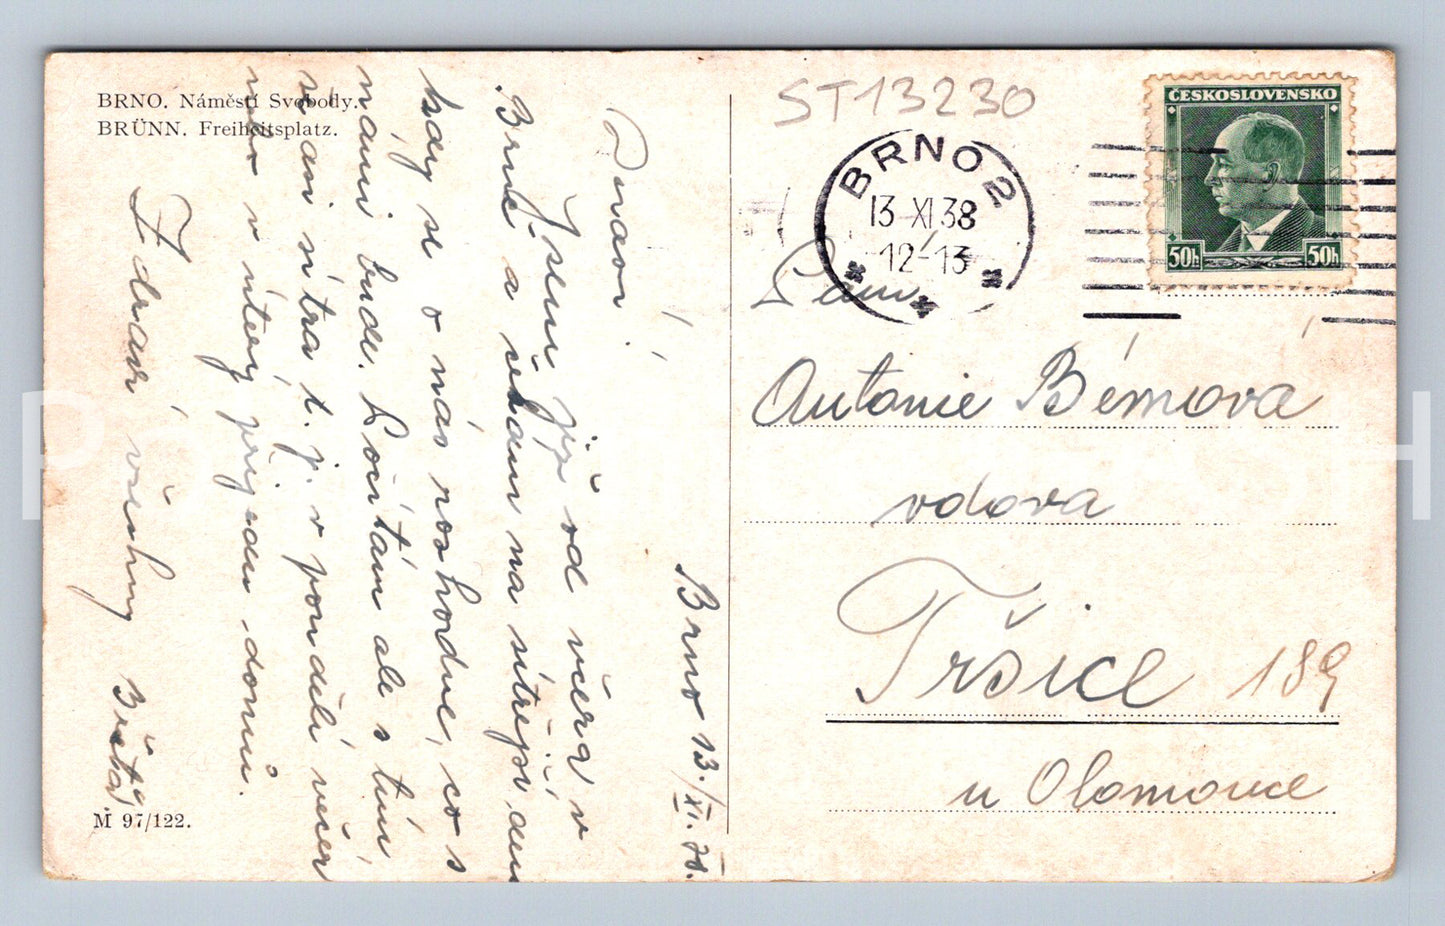 BRNO. Náměstí Svobody.
BRÜNN. Freiheitsplatz.
Brno 13./XI. 38.
Drazí!
Jsem již od včera v
Brně a čekám na zítřejší den
kdy se o nás rozhodne, co s
námi bude. Počítám ale s tím,
že ani zítra t. j. v pondělí večer
v úterý přijedu domů.
Zdraví všechny
M 97/122.
ST13230
BRNO 2
13 XI 38
12-13
ČESKOSLOVENSKO
50h 50h
Paní
Antonie Bémová
vdova
Tršice 189
u Olomouce